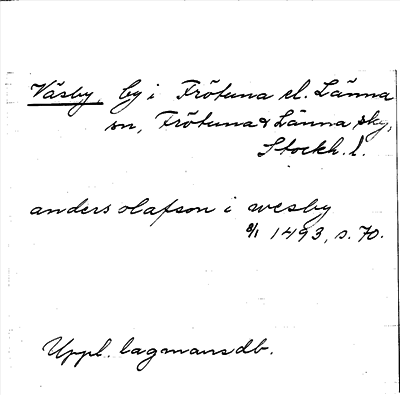 Väsby, by i Frötuna el. Länna
sn, Frötuna & Länna sky,
Stockh. l.
anders olafson i wesby
8/1 1493, s. 70.
Uppl. lagmansdb.